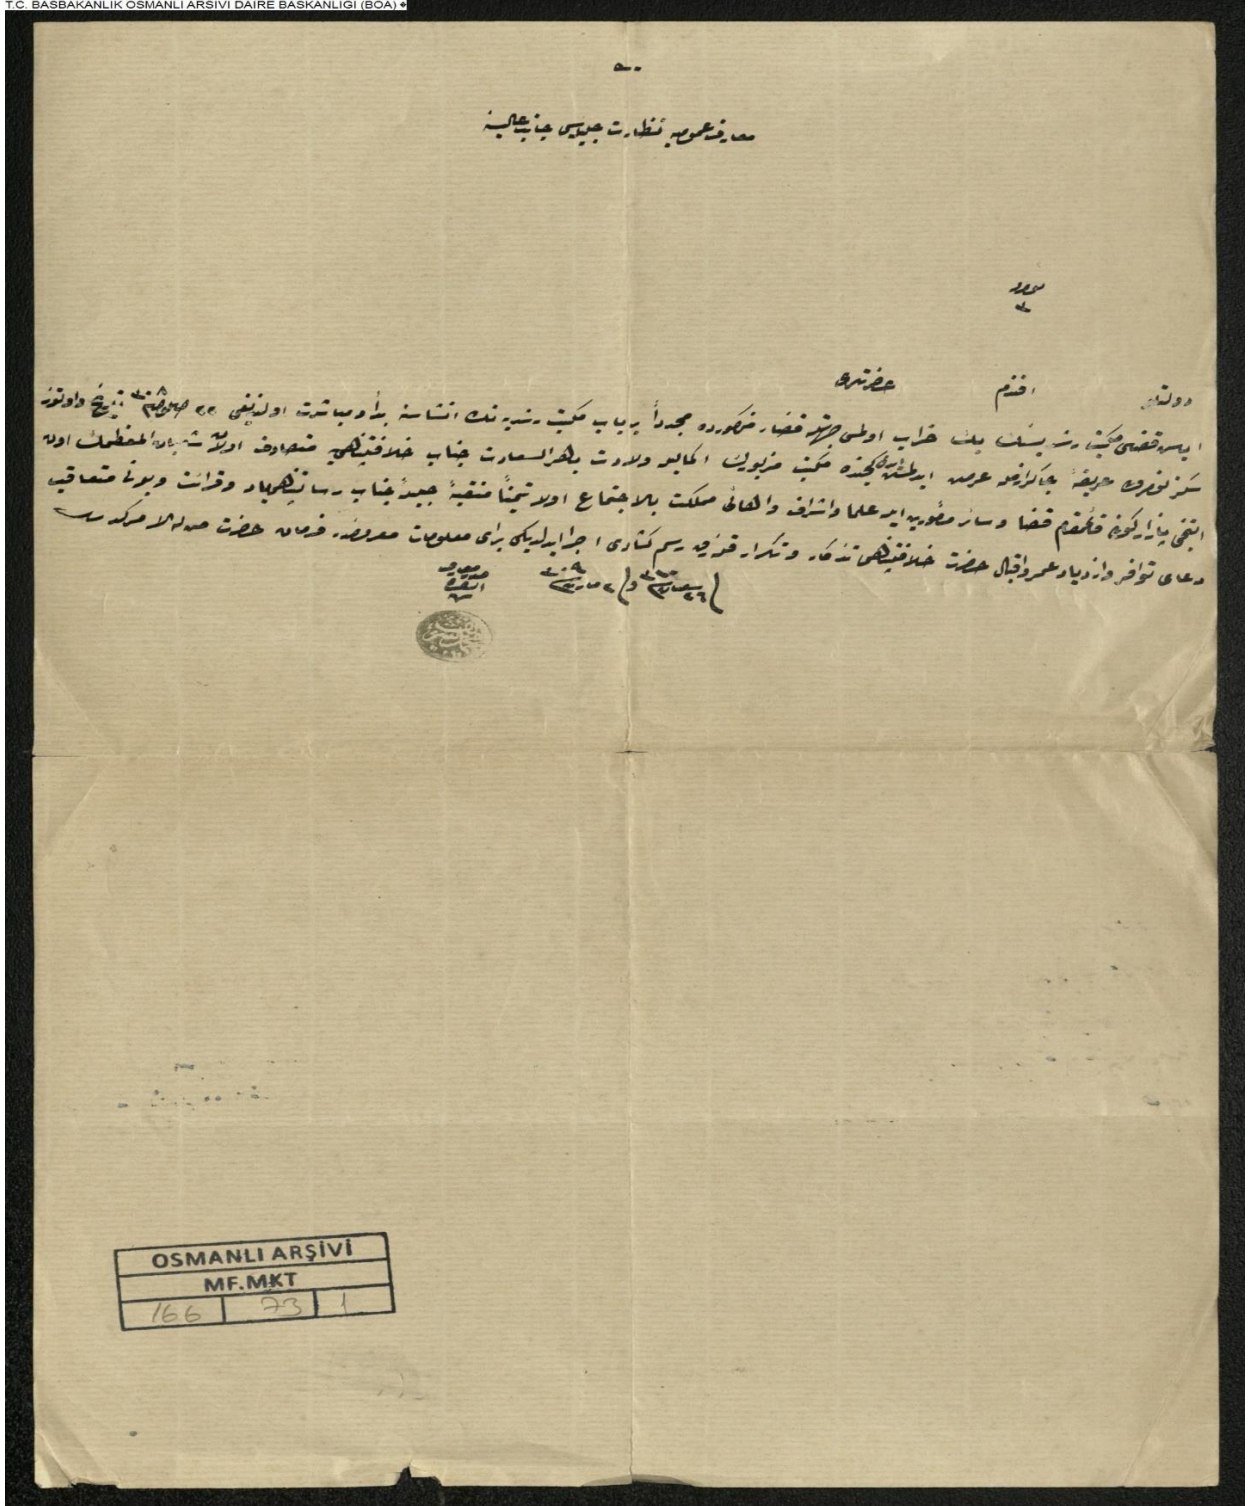 T.C. BASBAKANLIK OSMANLI ARSIVI DAIRE BASKANLIGI (BOA)
معارف عمومیه نظارت جلیله‌سی جانب عالیسنه
دولتلو افندم حضرتلری
قضاسی مکتب رشدیسنك پك خراب اولمسی جهتله قضاء مذکورده مجدداً بر باب مکتب رشدیه‌نك انشاسنه بدأ و مباشرت اولندیغی تاریخ و اوتوز
سکز نومرولی عریضهٔ چاکرانه‌مله عرض مکتب مزبورك اکمالیله ولادت باهر السعادت جناب خلافتپناهی‌یه متصادف اولان شعبان المعظمك اون
التنجی پازار کونی قائمقام قضا و سائر مأمورین ایله علما و اشراف و اهالئ مملکت بالاجتماع اولا تیمناً منقبهٔ جلیلهٔ جناب رسالتپناهی یاد و قرائت و بونی متعاقب
دعای توافر و ازدیاد عمر و اقبال حضرت خلافتپناهی تذکار و تکرار قلنه‌رق رسم کشادی اجرا ایدلدیکی برای معلومات معروضدر فرمان حضرت من له الامرکدر
OSMANLI ARŞİVİ
MF.MKT
166 73 1